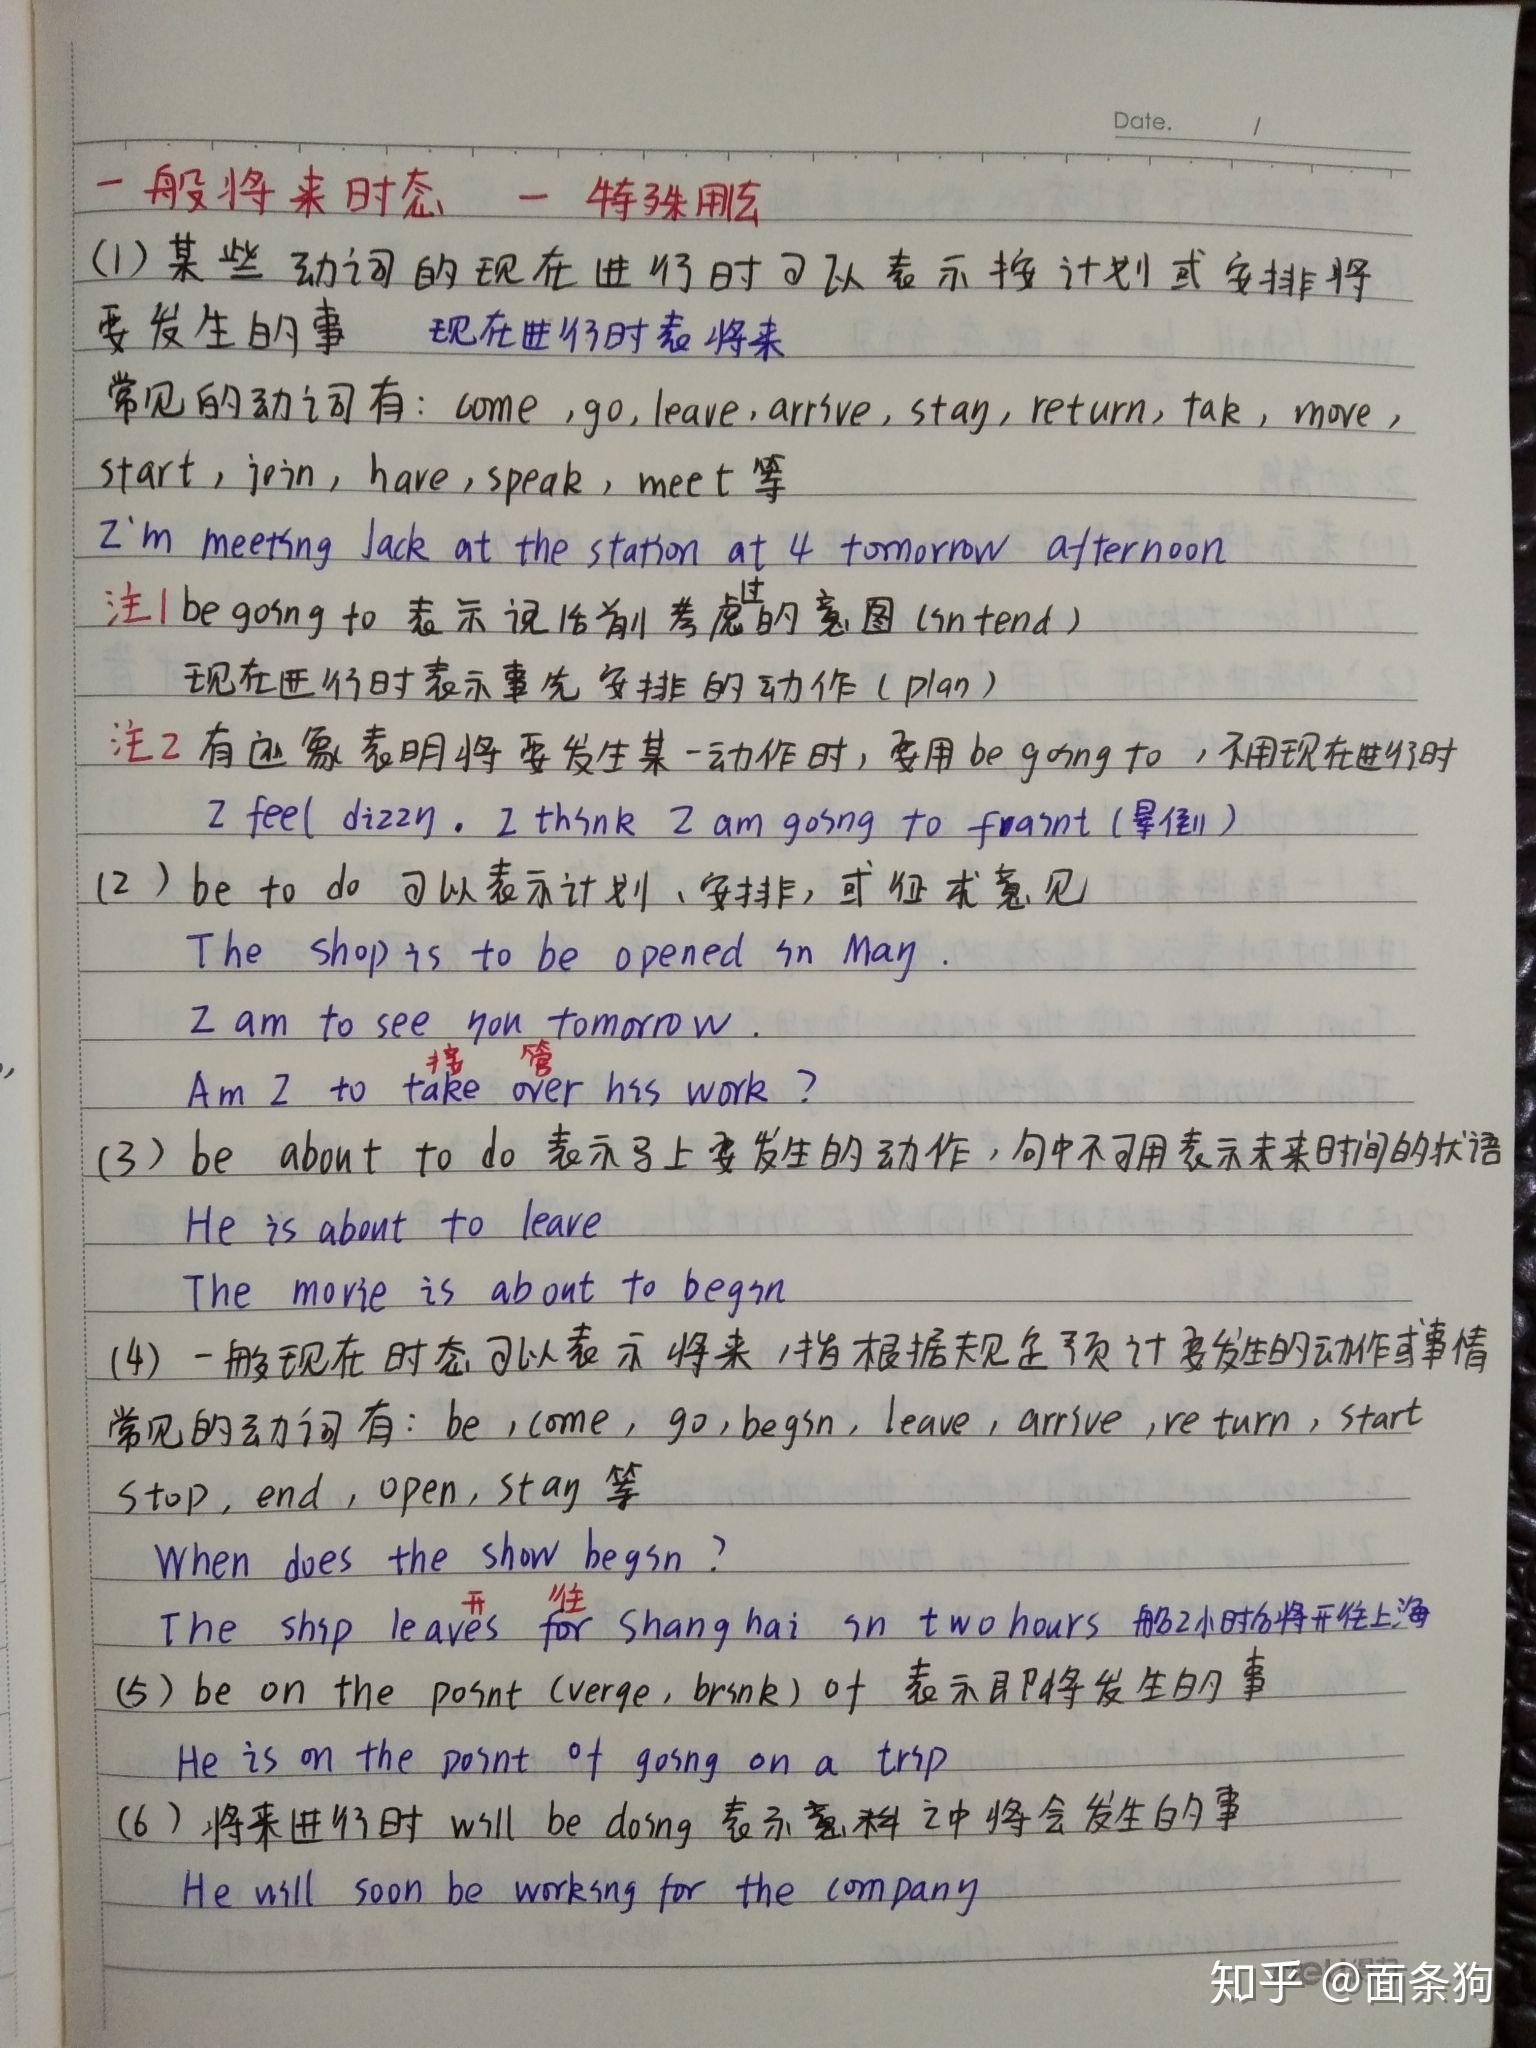 Date. /
一般将来时态 一 特殊用法
(1) 某些动词的现在进行时可以表示按计划或安排将
要发生的事 现在进行时表将来
常见的动词有: come, go, leave, arrive, stay, return, tak, move,
start, join, have, speak, meet 等
I'm meeting Jack at the station at 4 tomorrow afternoon
注1 be going to 表示说话前考虑过的意图 (intend)
现在进行时表示事先安排的动作 (plan)
注2 有迹象表明将要发生某一动作时, 要用 be going to, 不用现在进行时
I feel dizzy. I think I am going to faint (晕倒)
(2) be to do 可以表示计划、安排, 或征求意见
The shop is to be opened in May.
I am to see you tomorrow.
接 管
Am I to take over his work?
(3) be about to do 表示马上要发生的动作, 句中不可用表示未来时间的状语
He is about to leave
The movie is about to begin
(4) 一般现在时态可以表示将来, 指根据规定预计要发生的动作或事情
常见的动词有: be, come, go, begin, leave, arrive, return, start
stop, end, open, stay 等
When does the show begin?
开 往
The ship leaves for Shanghai in two hours 船2小时后将开往上海
(5) be on the point (verge, brink) of 表示即将发生的事
He is on the point of going on a trip
(6) 将来进行时 will be doing 表示意料之中将会发生的事
He will soon be working for the company
知乎 @面条狗